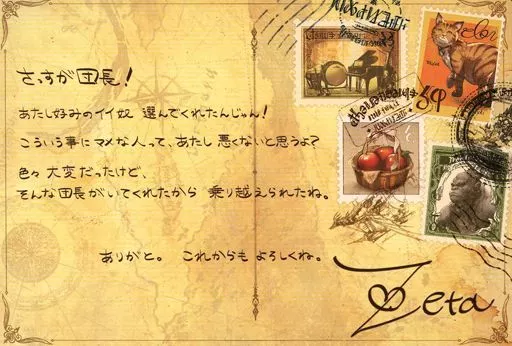 さっすが団長！
あたし好みのイイ奴 選んでくれたんじゃん！
こういう事にマメな人って、あたし 悪くないと思うよ？
色々 大変だったけど、
そんな団長がいてくれたから 乗り越えられたね。
ありがと。 これからも よろしくね。
Zeta